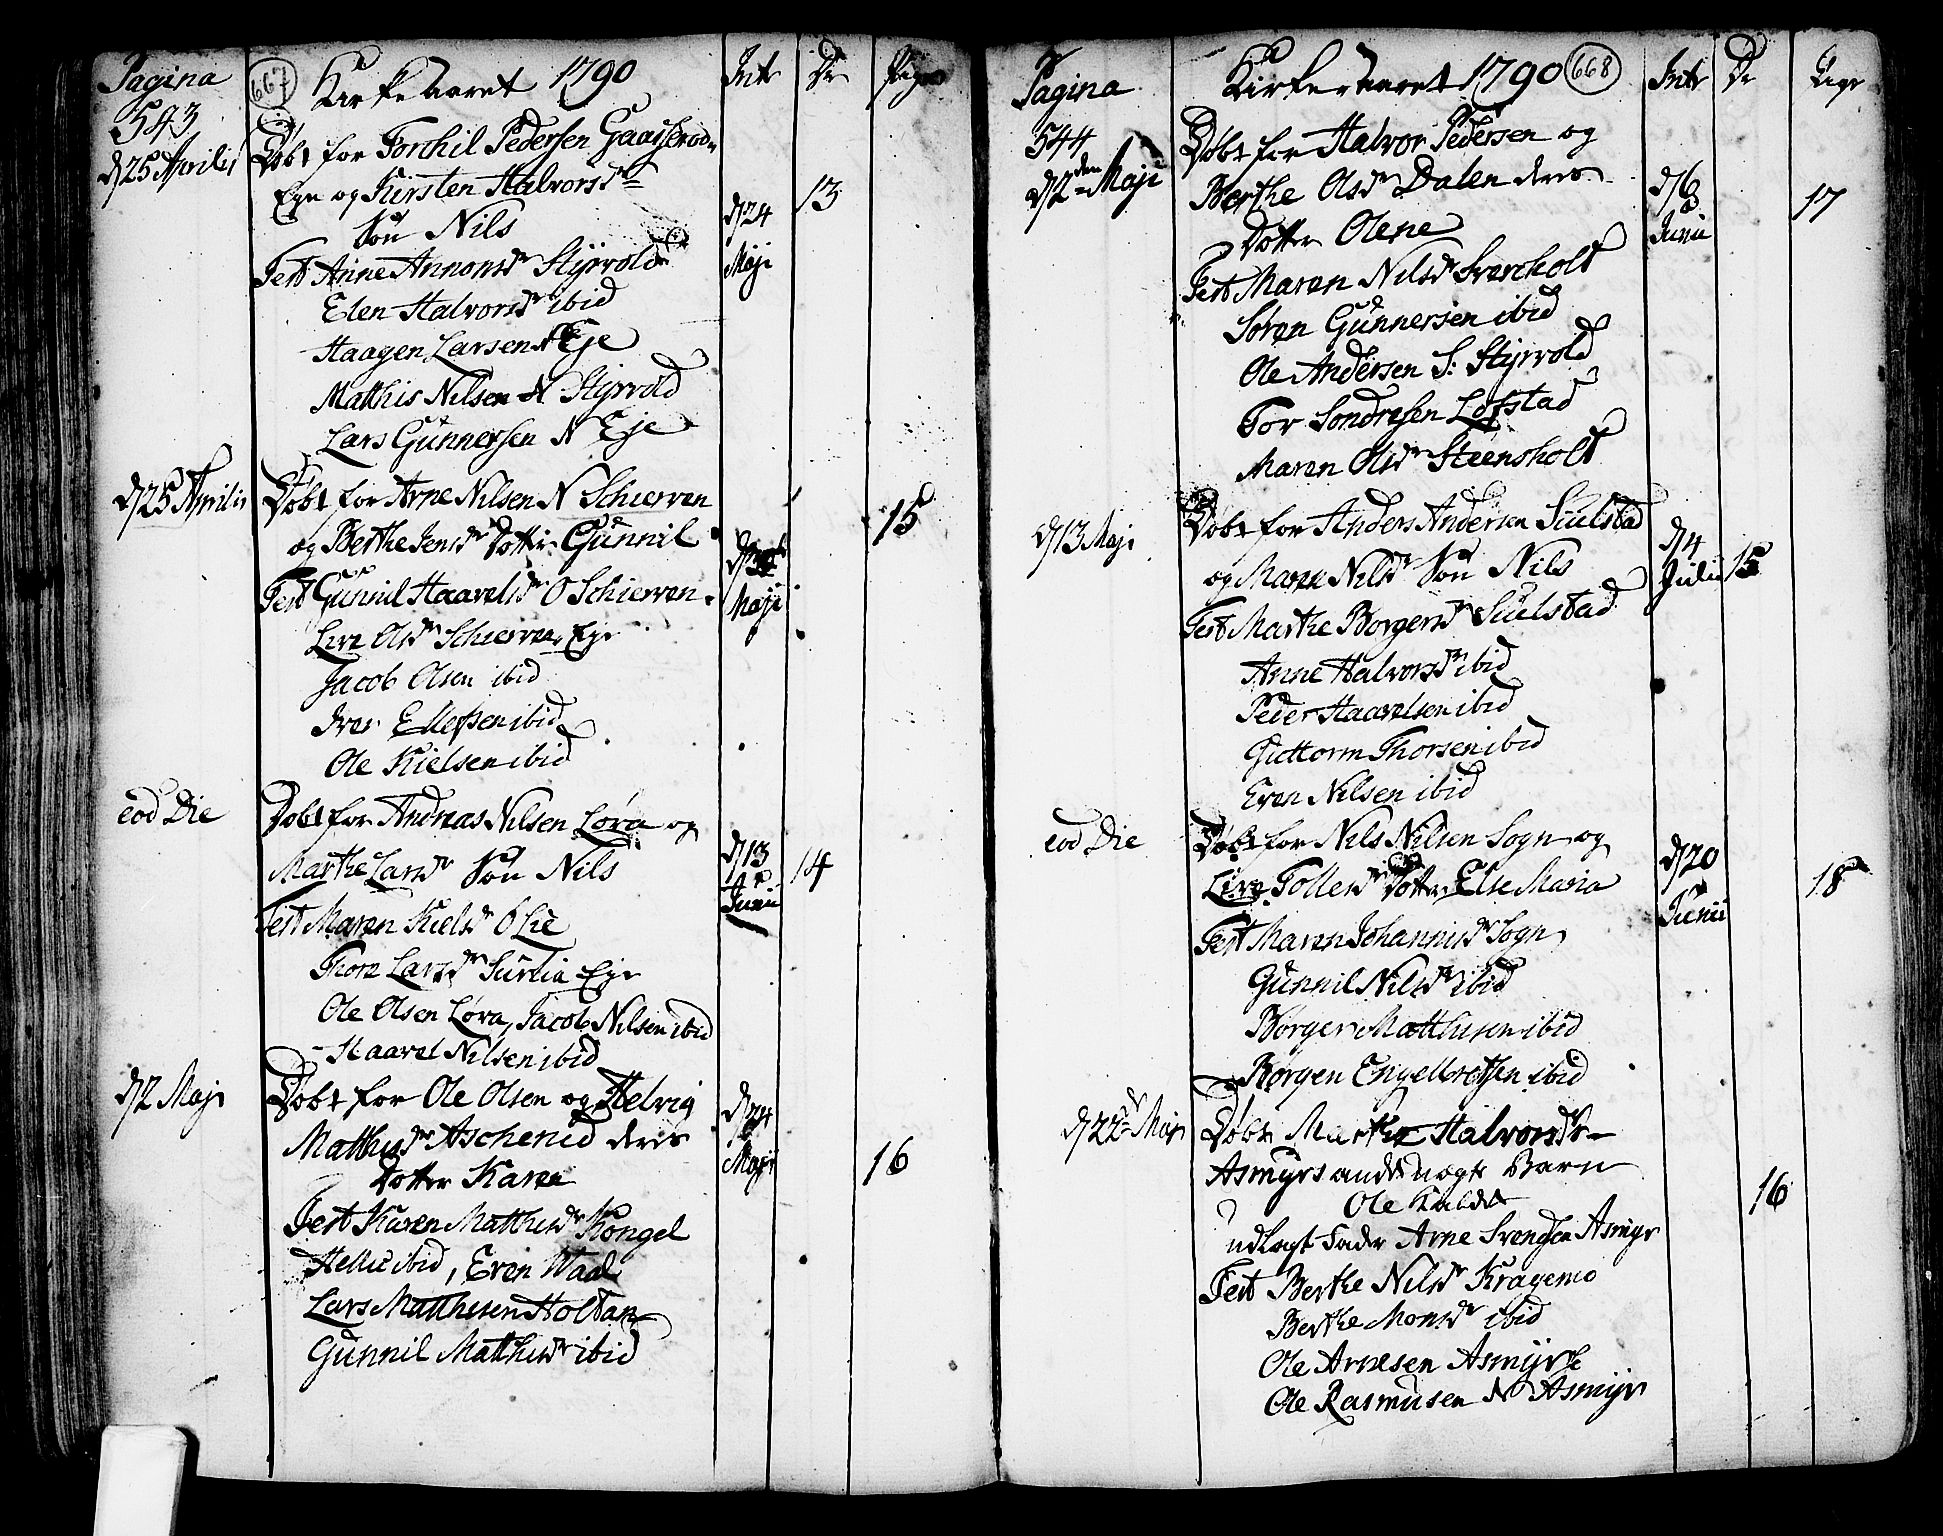 Pagina
543
667
Kirkeaaret 1790
Intr
Dr
Piger
d/25 Aprilis
Døbt for Torchil Pedersen Gaasserød
Eye og Kirsten Halvorsdr
Søn Nils
d/24
Maji
13
Test Anne Annonsdr Styrvold
Elen Halvorsdr ibid
Haagen Larsen Eje
Matthis Nilsen N Styrvold
Lars Gunnersen N Eje
d/25 Aprilis
Døbt for Arne Nilsen N Schierven
og Berthe Jensdr Dotter Gunnil
15
Maji
Test Gunnil Haavelsdr O Schierven
Live Olsdr Schierven Eye
Jacob Olsen ibid
Iver Ellefsen ibid
Ole Kielsen ibid
eod Die
Døbt for Andreas Nilsen Løva og
Marthe Larsdr Søn Nils
d/13
Junii
14
Test Maren Kielsdr O Lie
Thore Larsdr Surlia Eye
Ole Olsen Løva, Jacob Nilsen ibid
Haavel Nilsen ibid
d/2 Maji
Døbt for Ole Olsen og Helvig
Matthisdr Aschenid deres
Dotter Karen
d/24
Maji
16
Test Karen Matthisdr Kongel
Hellie ibid, Even Waal
Lars Matthisen Holtan
Gunnil Matthisdr ibid
Pagina
544
Kirkeaaret 1790
668
Intr
Dr
Piger
d/2den Maji
Døbt for Halvor Pedersen og
Berthe Olsdr Dalen deres
Dotter Olene
d/6
Junii
17
Test Maren Nilsdr Svercholt
Søren Gunnersen ibid
Ole Andersen S: Styrvold
Tor Sondresen Løfstad
Maren Olsdr Steensholt
d/13 Maji
Døbt for Anders Andersen Suulstad
og Maren Nilsdr Søn Nils
d/4
Julii
15
Test Marthe Borgersdr Suulstad
Anne Halvorsdr ibid
Peder Haavelsen ibid
Guttorm Thorsen ibid
Even Nilsen ibid
eod Die
Døbt for Nils Nilsen Sogn og
Live Tollefsdr Dotter Else Maria
d/20
Junii
18
Test Maren Johannisdr Sogn
Gunnil Nilsdr ibid
Børger Matthisen ibid
Børgen Engelbretsen ibid
d/22 Maji
Døbt Marthe Halvorsdr
Asmyrs uægte Barn
Ole Kaldet
16
udlagt Fader Arne Svendsen Asmyr
Test Berthe Nilsdr Kragemo
Berthe Monsdr ibid
Ole Arnesen Asmyr
Ole Rasmusen N Asmyr